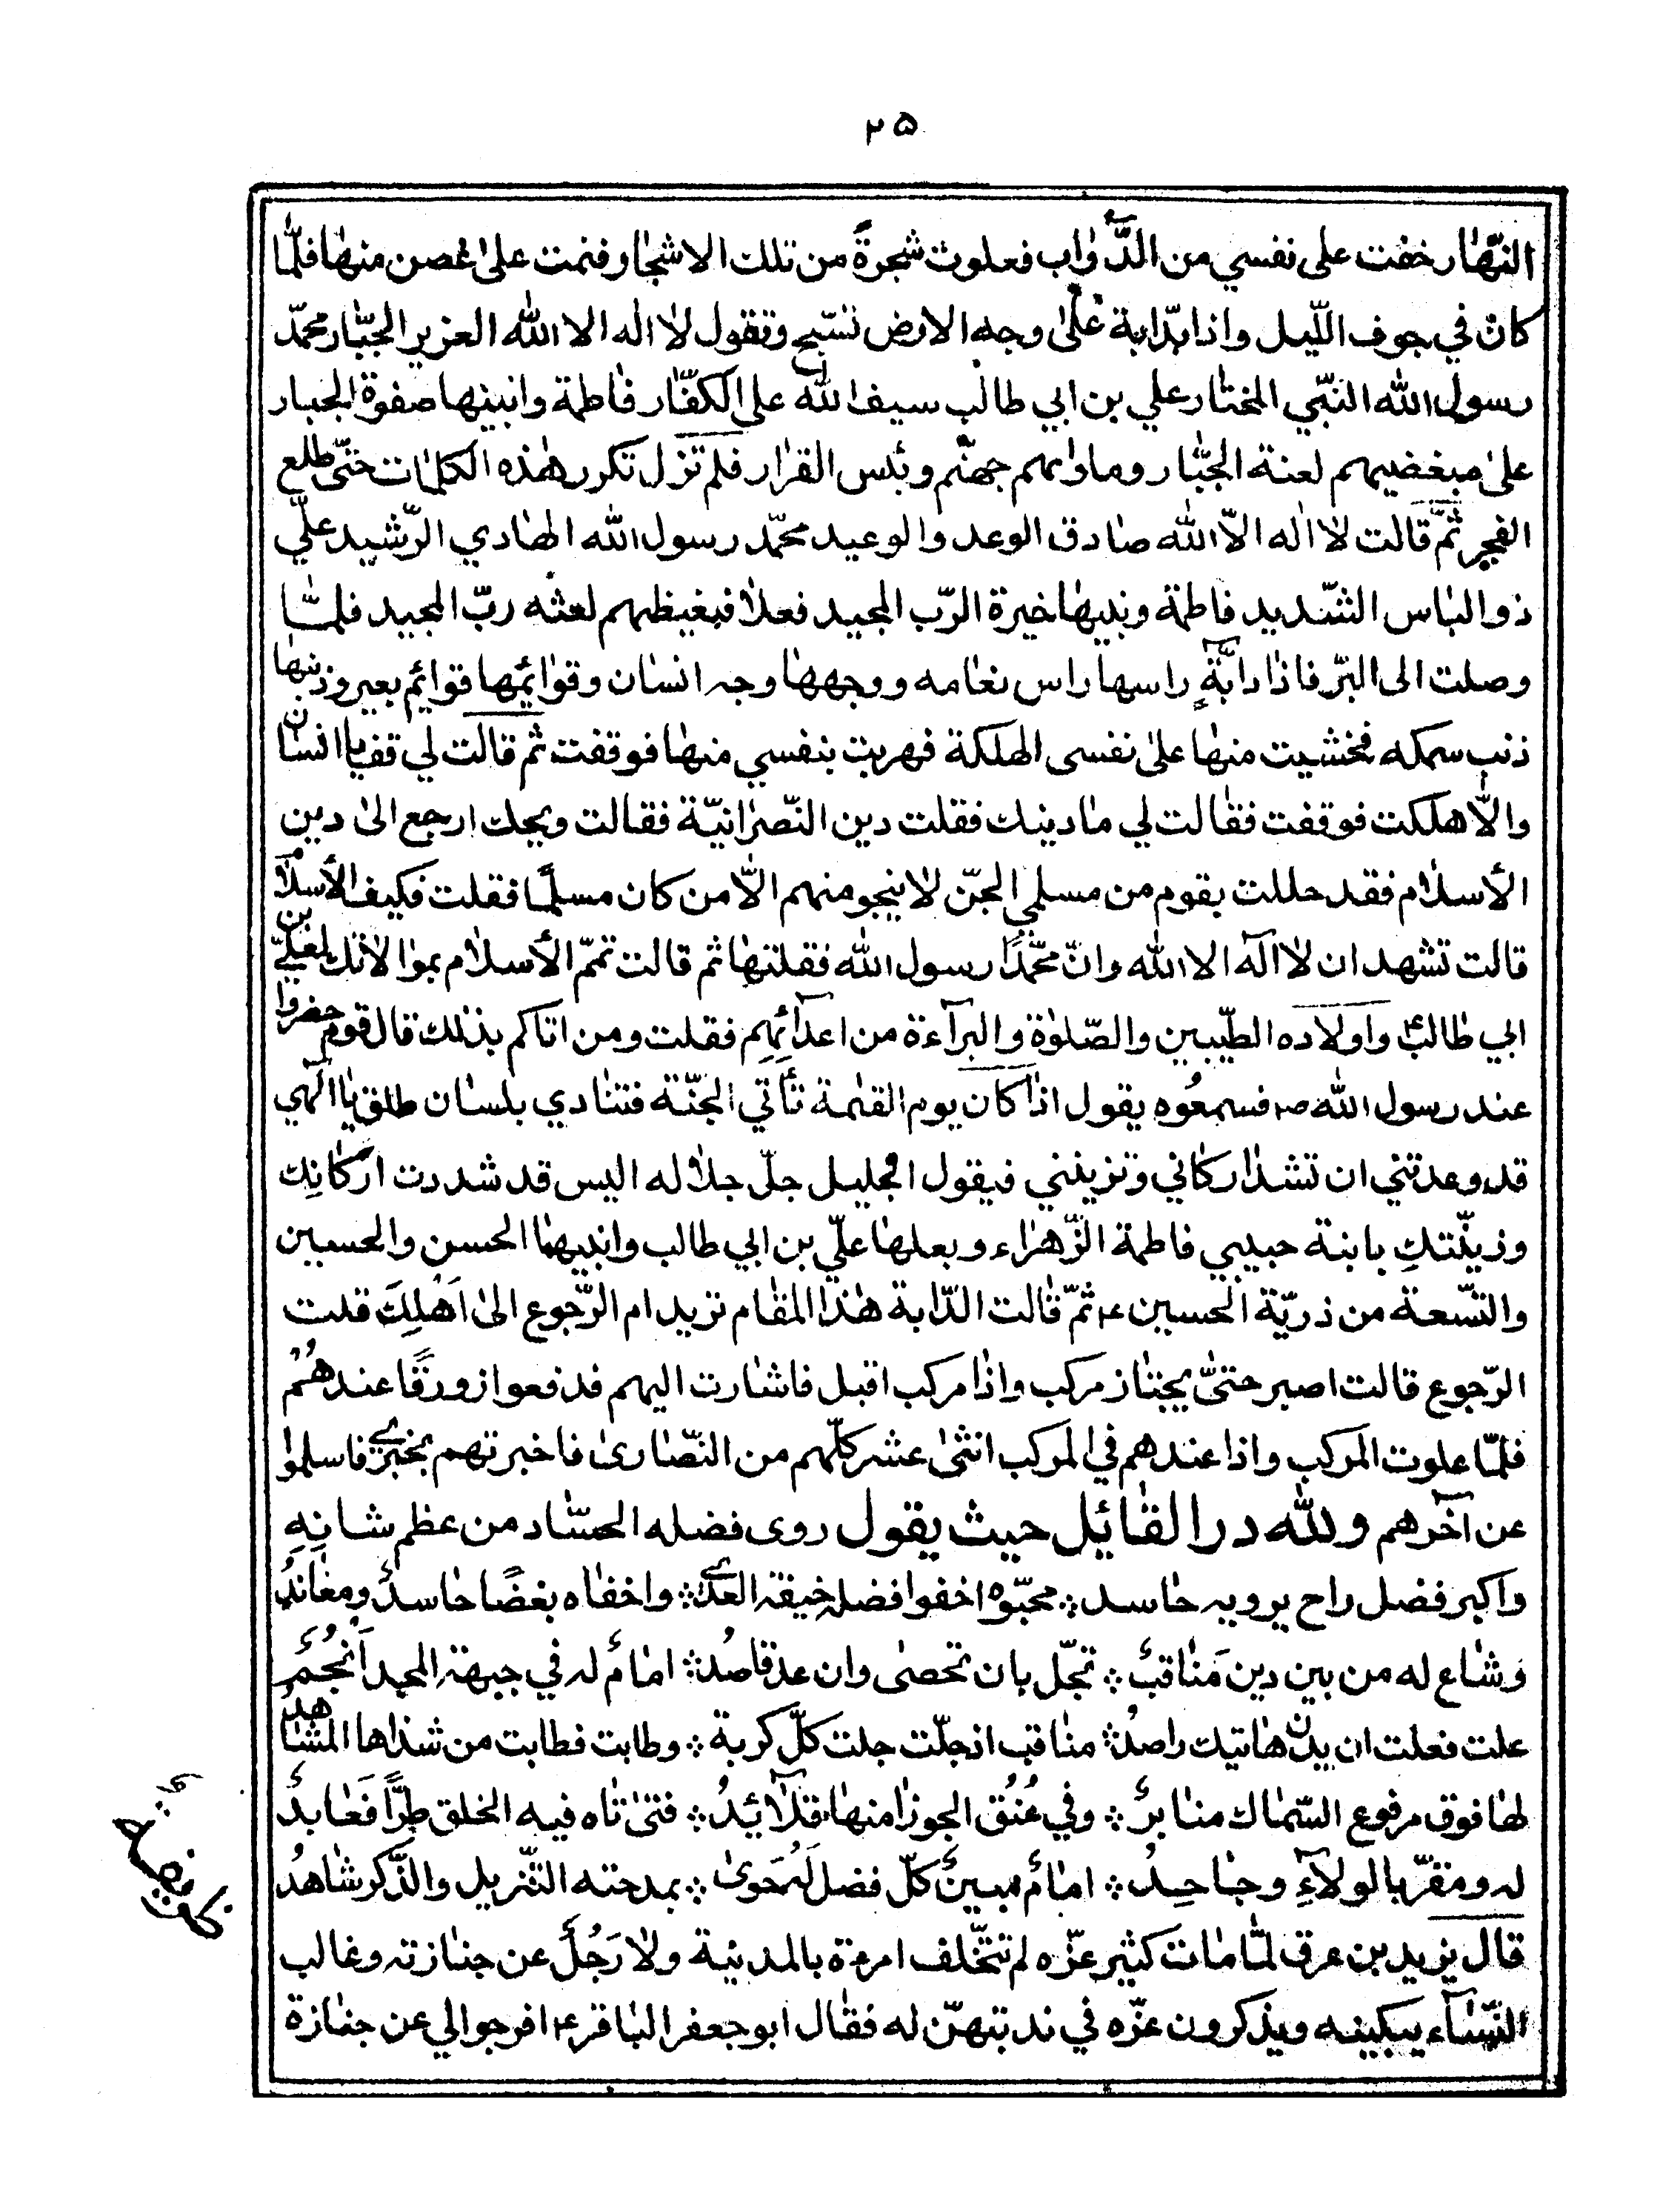 ٢٥
النّهار خفت على نفسي من الدّواب فعلوت شجرةً من تلك الاشجار فنمت على غصن منها فلمّا
كان في جوف اللّيل واذا بدّابة على وجه الارض تسّبح وتقول لا اله الا الله العزيز الجبّار محمّد
رسول الله النبّي المختار علي بن ابي طالب سيف الله على الكفّار فاطمة وابنيها صفوة الجبار
على مبغضيهم لعنة الجبّار وماواهم جهنّم وبئس القرار فلم تزل تكرر هذه الكلمات حتّى طلع
الفجر ثمّ قالت لا اله الاّ الله صادق الوعد والوعيد محمّد رسول الله الهادي الرّشيد علّي
ذو الباس الشّديد فاطمة وبنيها خيرة الرّب المجيد فعلا فبغيظهم لعثه ربّ المجيد فلمّا
وصلت الى البرّ فاذا دابّةٍ راسها راس نعامه ووجهها وجه انسان وقوائمها قوائم بعير وذنبها
ذنب سمكه فخشيت منها على نفسى الهلكة فهربت بنفسي منها فوقفت ثم قالت لي قف يا انسان
والاّ هلكت فوقفت فقالت لي ما دينك فقلت دين النّصرانيّة فقالت ويحك ارجع الى دين
الأسلام فقد حللت بقوم من مسلمي الجنّ لا ينجو منهم الاّ من كان مسلمًا فقلت فكيف الأسلام
قالت تشهد ان لا آله الا الله وانّ محمّدًا رسول الله فقلتها ثم قالت تمّم الأسلام بموالاتك لعلّي بن
ابي طالبؑ واولاده الطيّبين والصّلوة والبرآءة من اعدآئهِم فقلت ومن اتاكم بذلك قال قوم حضروا
عند رسول الله ص فسمعُوه يقول اذا كان يوم القيمة تأتي الجنّة فتنادي بلسان طلق يا الهي
قد وعدتني ان تشد اركاني وتزينني فيقول الجليل جلّ جلاله اليس قد شددت اركانِك
وزيّنتكِ بابنة حبيبي فاطمة الزّهراء وبعلها علّي بن ابي طالب وابنيهما الحسن والحسين
والتّسعة من ذريّة الحسين ع ثمّ قالت الدّابة هذا المقام تريد ام الرّجوع الى اَهْلِكَ قلت
الرّجوع قالت اصبر حتىّ يجتاز مركب واذا مركب اقبل فاشارت اليهم فدفعوا زورقًا عندهُمْ
فلمّا علوت المركب واذا عندهم في المركب اثنى عشر كلّهم من النّصارى فاخبرتهم بخبري فاسلموا
عن آخرهم ولله در القائل حيث يقول روى فضله الحسّاد من عظم شانِهِ
واكبر فضل راح يرويه حاسد ؞ محبّوه اخفوا فضله خيفة العدى ؞ واخفاه بغضًا حاسدٌ ومعاندُ
وشاع له من بين دين مَناقبٌ ؞ تجّل بان تحصى وان عد قاصُد ؞ امامٌ له في جبهة المجد اَنْجُمٌ
علت فعلت ان يدن هاتيك راصدُ ؞ مناقب اذ جلّت جلت كلّ كربة ؞ وطابت فطابت من شذاها المشاهدُ
لها فوق مرفوع السّماك منابرٌ ؞ وفي عُنُق الجوزا منها قلآئِدُ ؞ فتى تاه فيه الخلق طرًّا فَعابدٌ
له ومقرّ بالولآءِ وجاحِدُ ؞ امامٌ مبينٌ كلّ فضل لَه حَوى ؞ بمدحته التّنزيل والذّكر شاهدُ
قال يزيد بن عرق لمّا مات كثير عزّه لم تتخّلف امرءة بالمدينة ولا رَجُلٌ عن جنازته وغالب
النّسآء يبكينه ويذكرون عزّه في ندبتهنّ له فقال ابو جعفر الباقر ع افرجوا لي عن جنازة